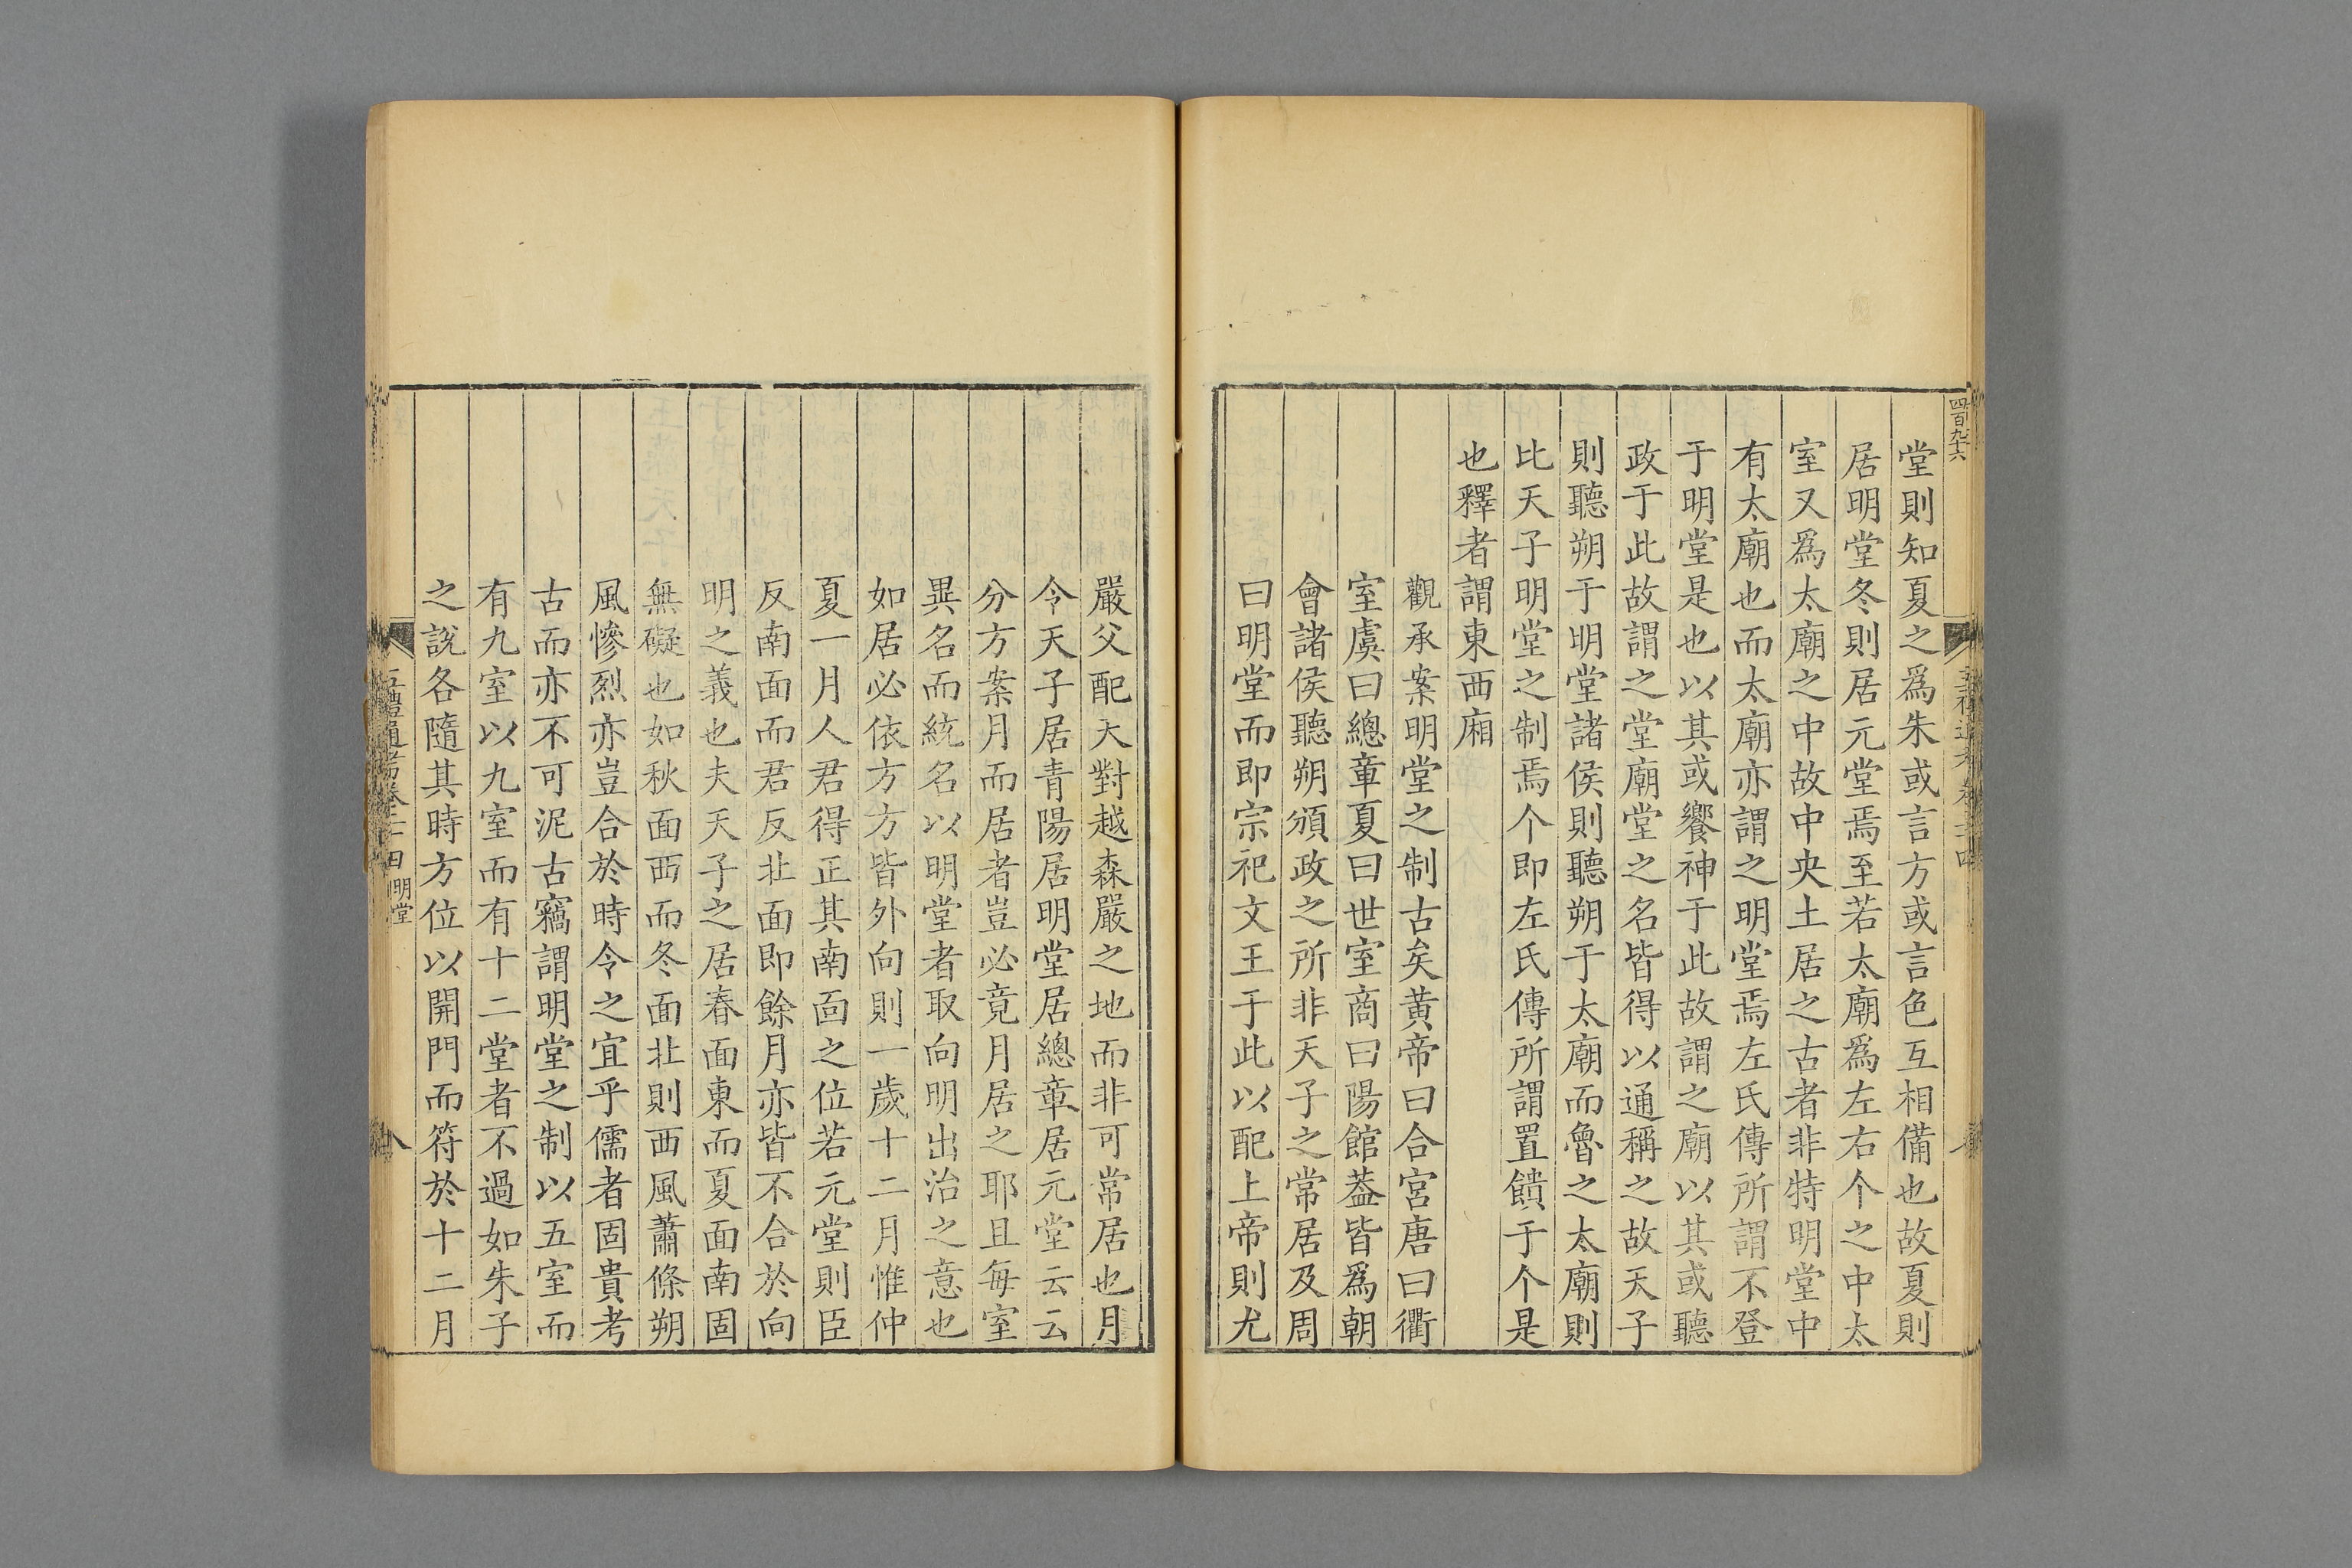 四百九十六
堂則知夏之爲朱或言方或言色互相備也故夏則
居明堂冬則居元堂焉至若太廟爲左右个之中太
室又爲太廟之中故中央土居之古者非特明堂中
有太廟也而太廟亦謂之明堂焉左氏傳所謂不登
于明堂是也以其或饗神于此故謂之廟以其或聽
政于此故謂之堂廟堂之名皆得以通稱之故天子
則聽朔于明堂諸侯則聽朔于太廟而魯之太廟則
比天子明堂之制焉个即左氏傳所謂置饋于个是
也釋者謂東西廂
觀承案明堂之制古矣黃帝曰合宮唐曰衢
室虞曰總章夏曰世室商曰陽館葢皆爲朝
會諸侯聽朔頒政之所非天子之常居及周
曰明堂而即宗祀文王于此以配上帝則尤
嚴父配天對越森嚴之地而非可常居也月
令天子居青陽居明堂居總章居元堂云云
分方案月而居者豈必竟月居之耶且每室
異名而統名以明堂者取向明出治之意也
如居必依方方皆外向則一歲十二月惟仲
夏一月人君得正其南面之位若元堂則臣
反南面而君反北面即餘月亦皆不合於向
明之義也夫天子之居春面東而夏面南固
無礙也如秋面西而冬面北則西風蕭條朔
風慘烈亦豈合於時令之宜乎儒者固貴考
古而亦不可泥古竊謂明堂之制以五室而
有九室以九室而有十二堂者不過如朱子
之說各隨其時方位以開門而符於十二月
禮通考卷二十四 明堂 八